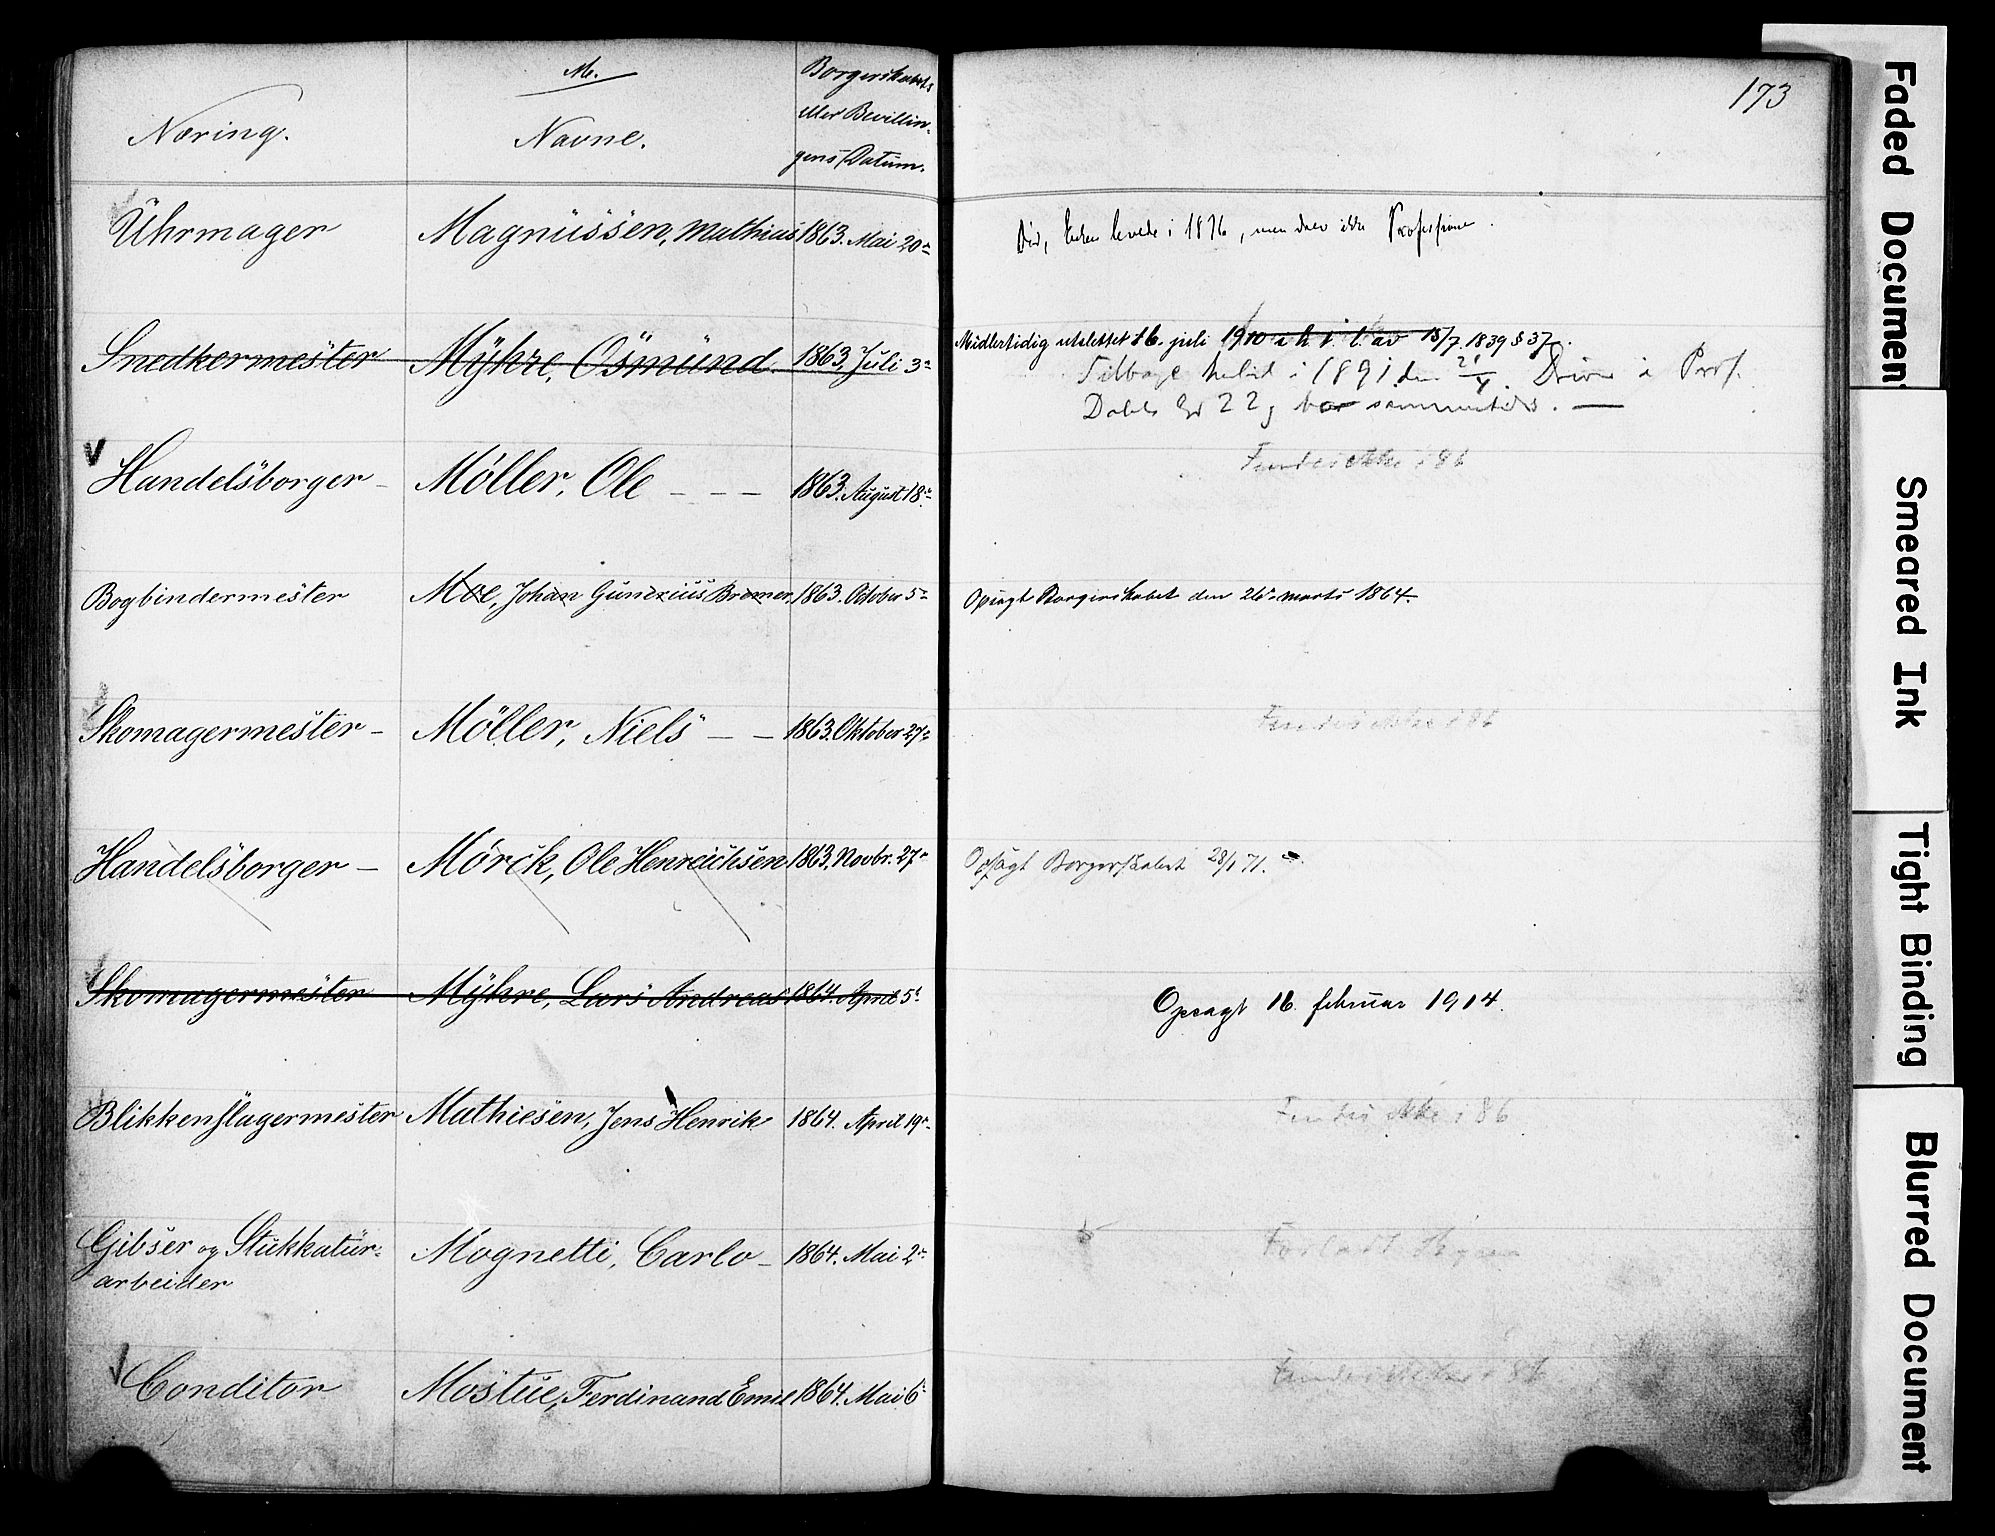 M.
173
Næring.
Navne.
Borgerskabets
eller Bevillin-
gens Datum.
Uhrmager Magnussen, Mathias 1863. Mai 20de
Død, Enken levede i 1876, men drev ikke Professionen.
Snedkermester Myhre, Osmund 1863, Juli 3de
Midlertidig utslettet 16. juli 1910 i h. t. l. av 15/7. 1839 § 37.
Tilbage kaldt i 1891 den Driver i Prof.
Dahls Gd 22 sammesteds. —
Handelsborger - Møller, Ole - - - 1863. August 18de
Findes ikke i 86
Bogbindermester Moe, Johan Gunerius Bremer, 1863. October 5te
Opsagt Borgerskabet den 26de marts 1864.
Skomagermester - Møller, Niels - - 1863. Oktober 27de
Findes ikke i 86
Handelsborger - Mørck, Ole Henrichsen 1863. Novbr. 27de
Opsagt Borgerskabet 28/1 71.
Skomagermester Myhre, Lars Andreas 1864. April 5te
Opsagt 16. februar 1914.
Blikkenslagermester Mathiesen, Jens Henrik 1864. April 19de
Findes ikke i 86
Gibser og Stukkatür-
arbeider
Mognetti, Carlo - 1864. Mai 2den
Forladt Byen
Conditor Mostue, Ferdinand Emil 1864. Mai 6te
Findes ikke i 86
Faded Document
Smeared Ink
Tight Binding
Blurred Document